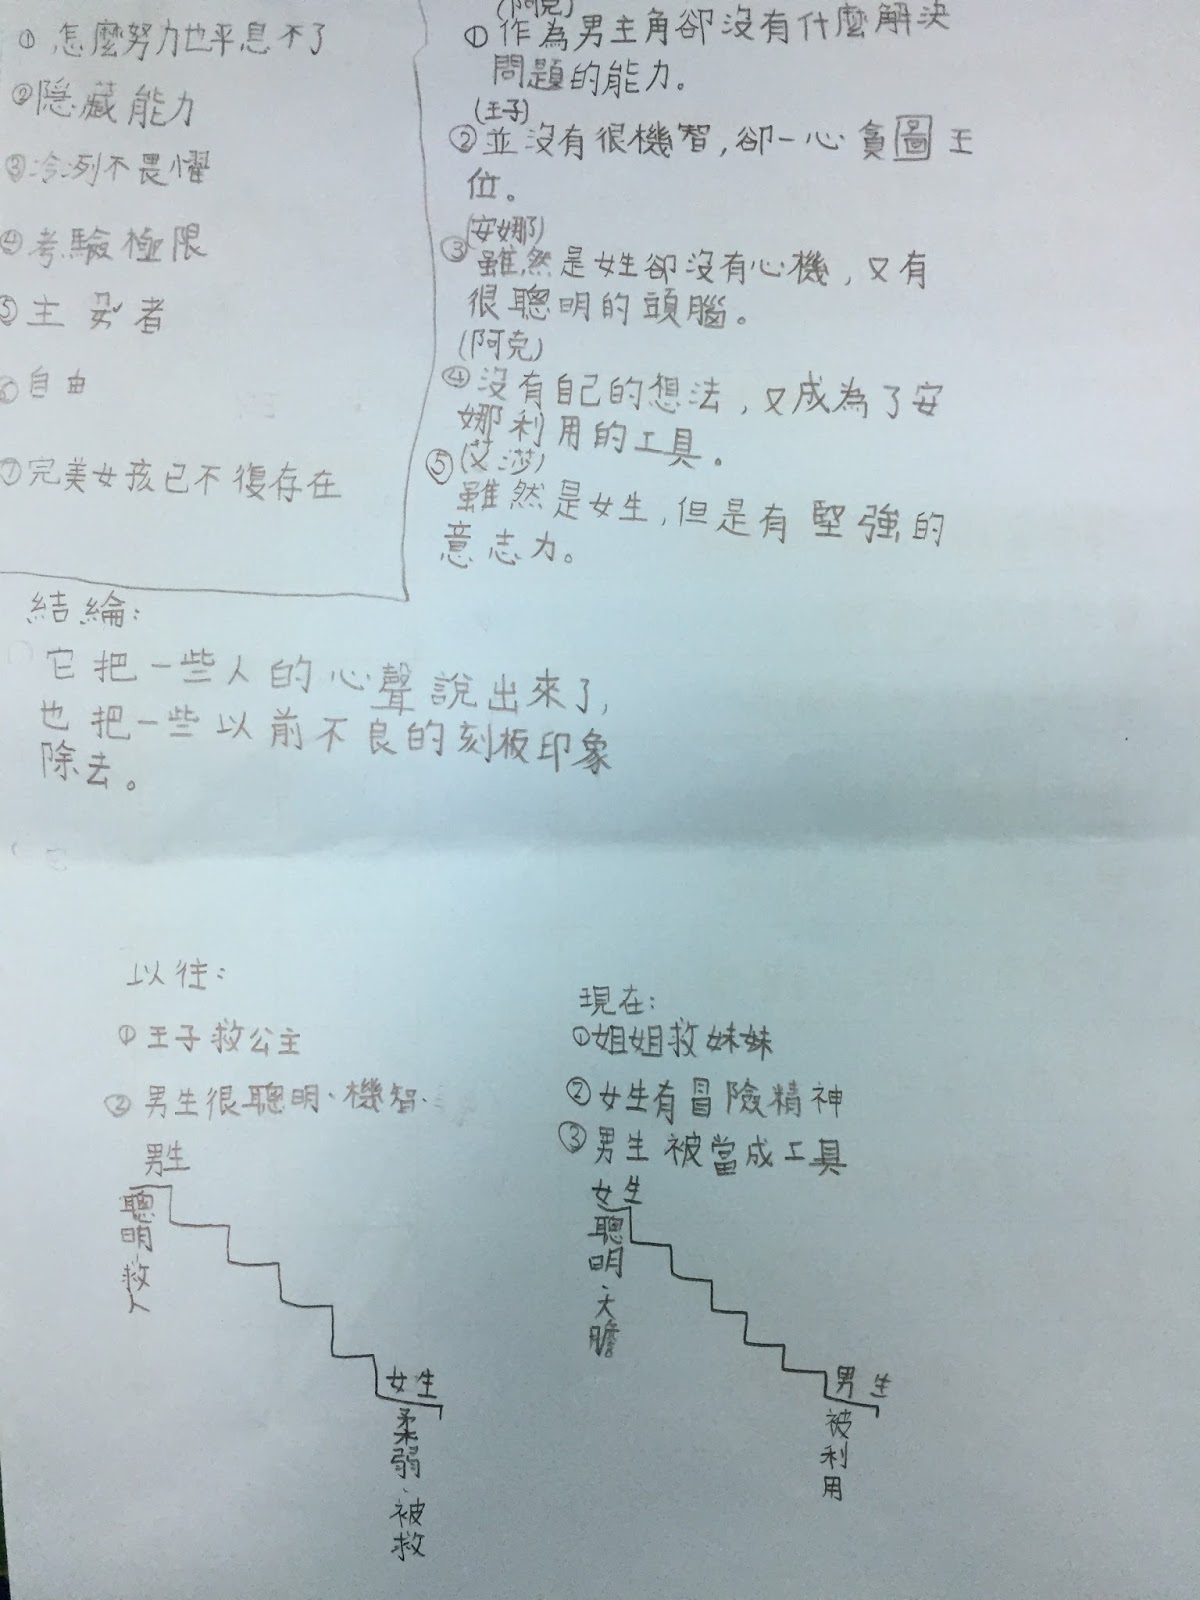 ①怎麼努力也平息不了
②隱藏能力
③冷冽不畏懼
④考驗極限
⑤主 者
⑥自由
⑦完美女孩已不復存在
(阿克)
①作為男主角卻沒有什麼解決
問題的能力。
(王子)
②並沒有很機智，卻一心貪圖王
位。
(安娜)
③雖然是女生卻沒有心機，又有
很聰明的頭腦。
(阿克)
④沒有自己的想法，又成為了安
娜利用的工具。
⑤(艾莎)
雖然是女生，但是有堅強的
意志力。
結論：
它把一些人的心聲說出來了，
也把一些以前不良的刻板印象
除去。
以往：
①王子救公主
②男生很聰明、機智、
男生
聰明、救人
女生
柔弱、被救
現在：
①姐姐救妹妹
②女生有冒險精神
③男生被當成工具
女生
聰明、大膽
男生
被利用